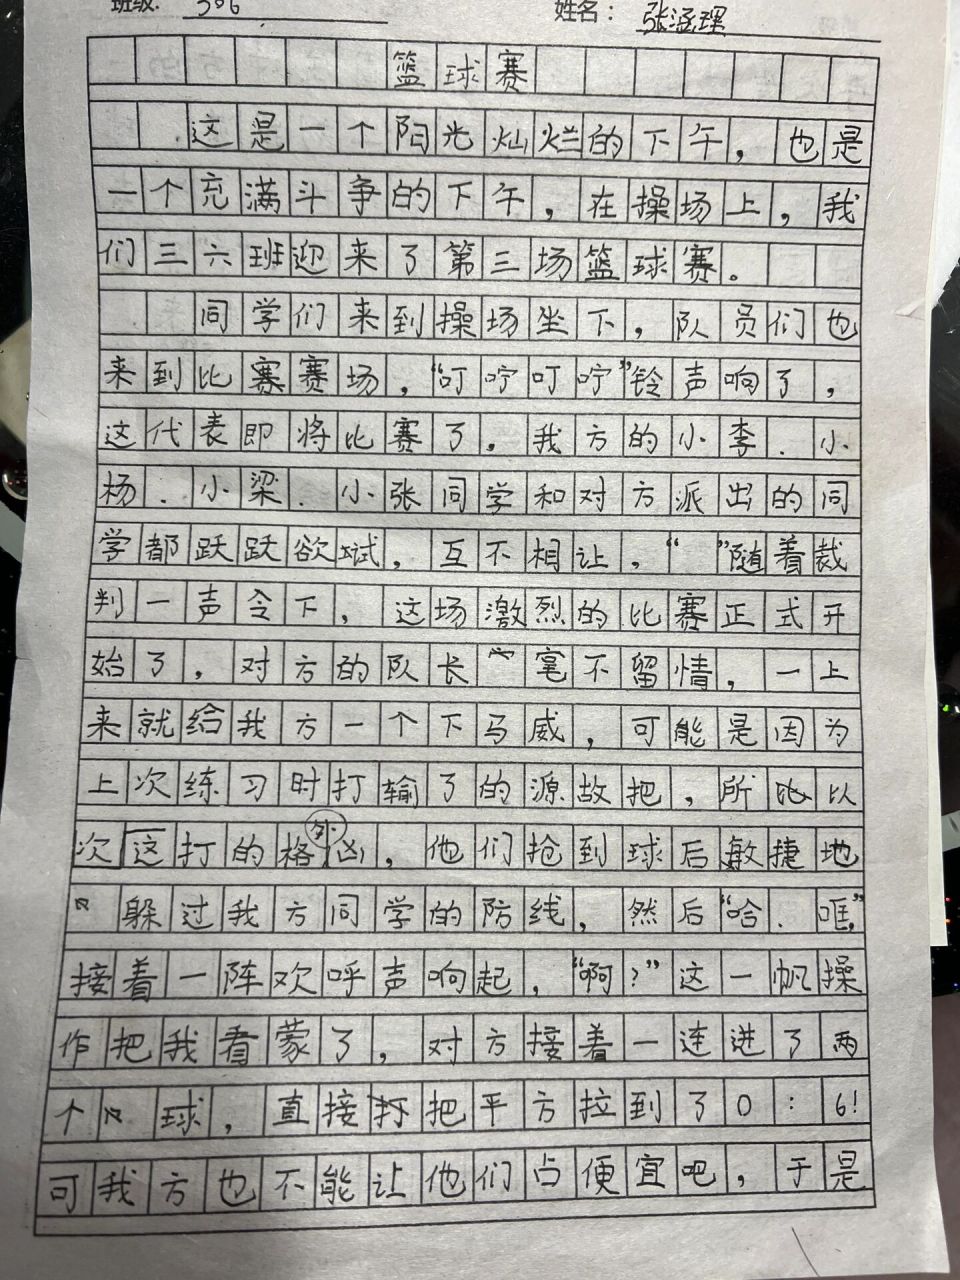 班级: 306 姓名: 张涵理
篮球赛
这是一个阳光灿烂的下午，也是
一个充满斗争的下午，在操场上，我
们三六班迎来了第三场篮球赛。
同学们来到操场坐下，队员们也
来到比赛赛场，“叮咛叮咛”铃声响了，
这代表即将比赛了。我方的小李、小
杨、小梁、小张同学和对方派出的同
学都跃跃欲试，互不相让，“ ”随着裁
判一声令下，这场激烈的比赛正式开
始了，对方的队长毫不留情，一上
来就给我方一个下马威，可能是因为
上次练习时打输了的源故把，所以
次这打的格外凶，他们抢到球后敏捷地
躲过我方同学的防线，然后“哈、哐”
接着一阵欢呼声响起，“啊？”这一帆操
作把我看蒙了，对方接着一连进了两
个球，直接把平方拉到了0：6！
可我方也不能让他们占便宜吧，于是